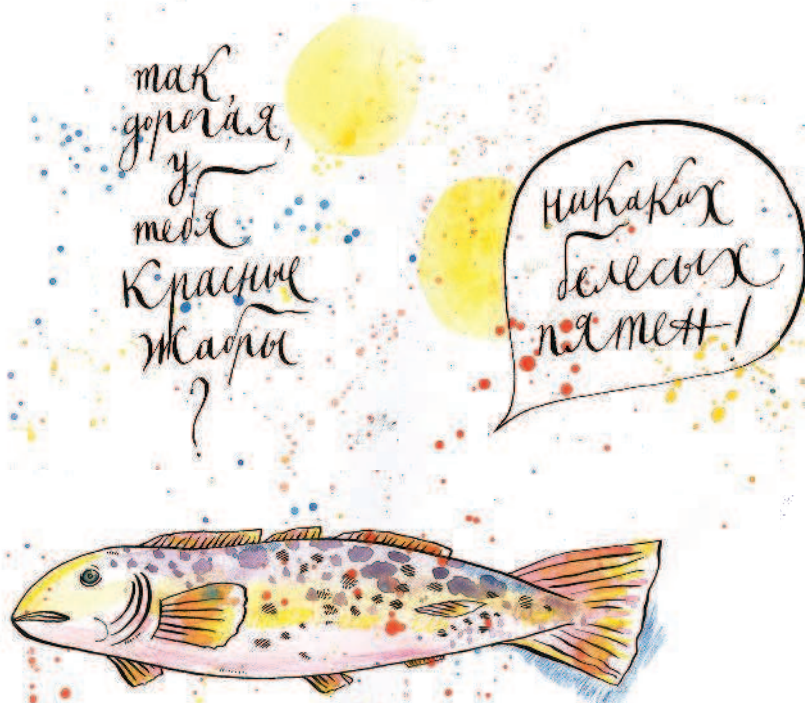 так,
дорогая,
у
тебя
красные
жабры
?
никаких
белесых
пятен!